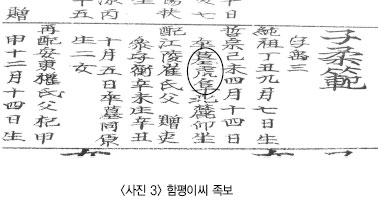 子柔範
字萬三
純祖丁丑九月七日生
哲宗己未四月十四日
卒墓虎音北麓卯坐
配江陵崔氏父 贈吏
參子衡辛未生辛丑
十月五日卒墓同原
生二女
再配安東權氏父杞甲
申十二月十四日生
〈사진 3〉 함평이씨 족보